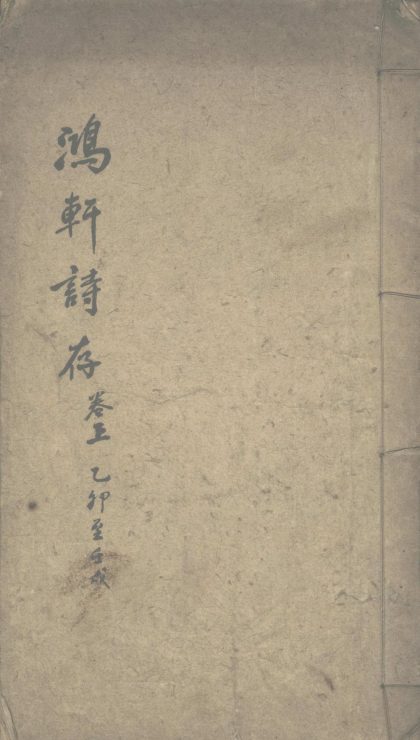 鴻軒詩存 卷上 乙卯至壬戌